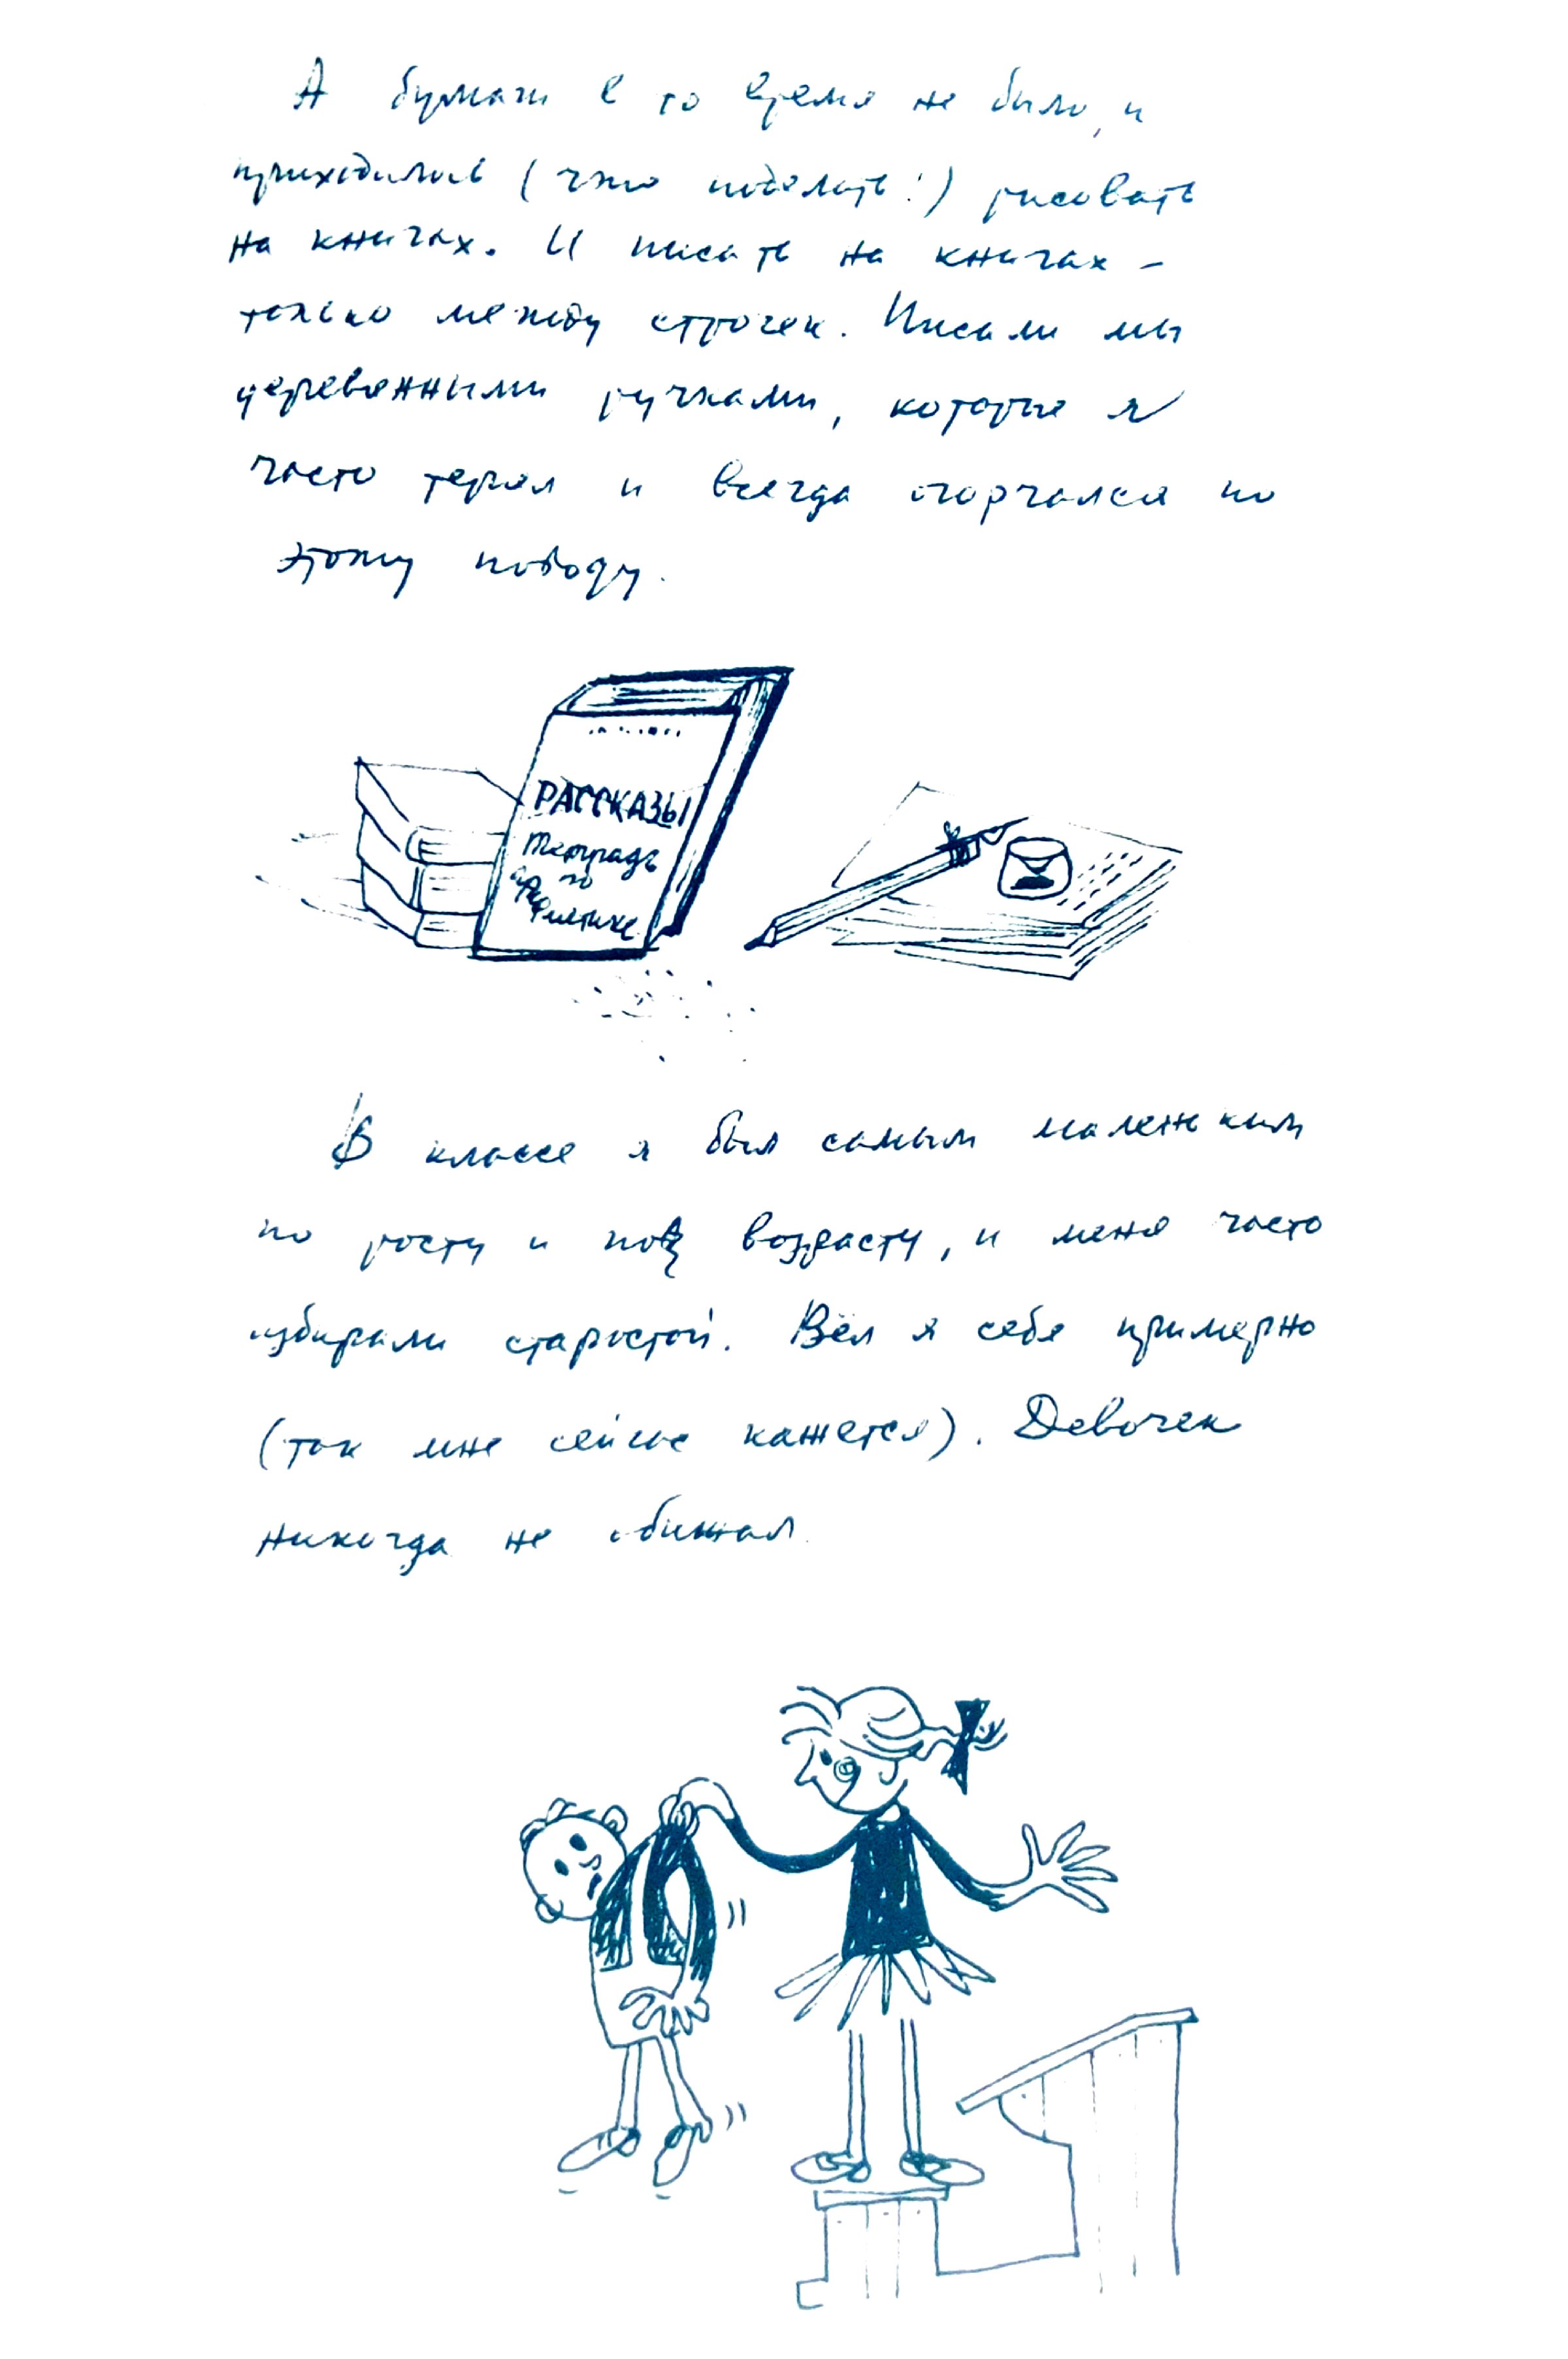 А бумаги в то время не было, и
приходилось (что поделать!) рисовать
на книгах. И писать на книгах –
только между строчек. Писали мы
деревянными ручками, которые я
часто терял и всегда огорчался по
этому поводу.
РАССКАЗЫ
Тетрадь
по
В классе я был самым маленьким
по росту и по возрасту, и меня часто
избирали старостой. Вёл я себя примерно
(так мне сейчас кажется). Девочек
никогда не обижал.